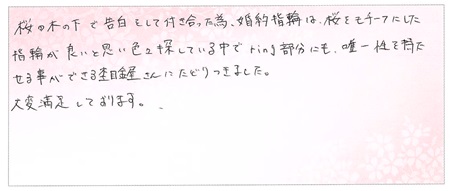 桜の木の下で告白をして付き合った為、婚約指輪は、桜をモチーフにした
指輪が良いと思い色々探している中でring部分にも、唯一性を持た
せる事ができる杢目金屋さんにたどりつきました。
大変満足しております。